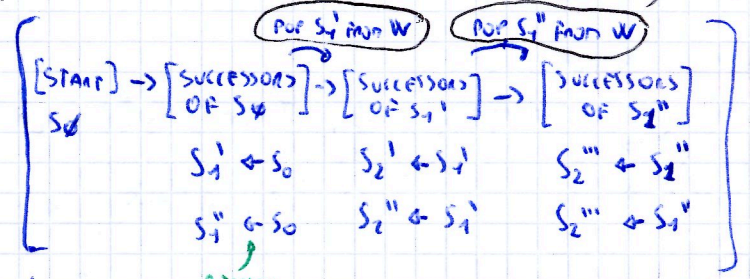 POP S₁' FROM W POP S₁'' FROM W
[START] → [SUCCESSORS OF S∅] → [SUCCESSORS OF S₁'] → [SUCCESSORS OF S₁'']
S∅
S₁' ← S₀ S₂' ← S₁' S₂''' ← S₁''
S₁'' ← S₀ S₂'' ← S₁' S₂'''' ← S₁''